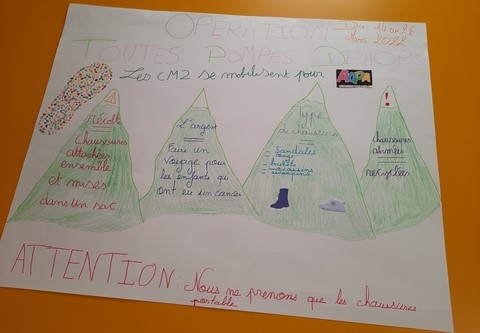 OPERATION
Du 14 au 26
Mars 2022
TOUTES POMPES DEHORS
Les CM2 se mobilisent pour
récolt
Chaussures
attachées
ensemble
et mises
dans un sac
L'argent
Faire un
voyage pour
les enfants qui
ont eu un cancer
Type
de chaussures
Sandales
tongs
bottes
mocassins
escarpins
!
chaussures
abimées
recyclées
ATTENTION : Nous ne prenons que les chaussures
portable